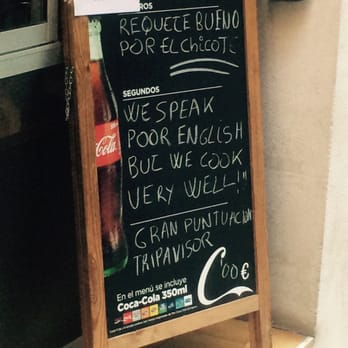 ROS
REQUETE BUENO
POR EL CHICOTE
SEGUNDOS
WE SPEAK
POOR ENGLISH
BUT WE COOK
VERY WELL!!"
GRAN PUNTUACION
TRIPAVISOR
En el menú se incluye
Coca-Cola 350ml
'00€
Coca